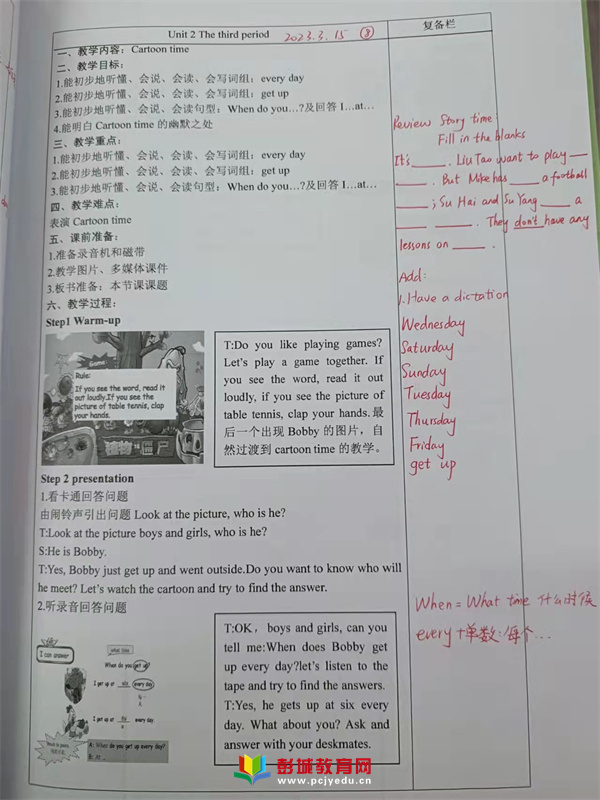 Unit 2 The third period
2023.3.15 ⑧
复备栏
一、教学内容：Cartoon time
二、教学目标：
1.能初步地听懂、会说、会读、会写词组：every day
2.能初步地听懂、会说、会读、会写词组：get up
3.能初步地听懂、会说、会读句型：When do you…?及回答 I…at…
4.能明白 Cartoon time 的幽默之处
三、教学重点：
1.能初步地听懂、会说、会读、会写词组：every day
2.能初步地听懂、会说、会读、会写词组：get up
3.能初步地听懂、会说、会读句型：When do you…?及回答 I…at…
四、教学难点：
表演 Cartoon time
五、课前准备：
1.准备录音机和磁带
2.教学图片、多媒体课件
3.板书准备：本节课课题
六、教学过程：
Step1 Warm-up
Game
Rule:
If you see the word, read it
out loudly.If you see the
picture of table tennis, clap
your hands.
植物 僵尸
T:Do you like playing games?
Let's play a game together. If
you see the word, read it out
loudly, if you see the picture of
table tennis, clap your hands.最
后一个出现 Bobby 的图片，自
然过渡到 cartoon time 的教学。
Step 2 presentation
1.看卡通回答问题
由闹铃声引出问题 Look at the picture, who is he?
T:Look at the picture boys and girls, who is he?
S:He is Bobby.
T:Yes, Bobby just get up and went outside.Do you want to know who will
he meet? Let's watch the cartoon and try to find the answer.
2.听录音回答问题
I can answer
what time
When do you get up?
I get up at six every day
I get up at every day
A: When do you get up every day?
B: At
T:OK，boys and girls, can you
tell me:When does Bobby get
up every day?let's listen to the
tape and try to find the answers.
T:Yes, he gets up at six every
day. What about you? Ask and
answer with your deskmates.
Review Story time
Fill in the blanks
It's ____. Liu Tao want to play __
____. But Mike has ____ a football
____; Su Hai and Su Yang ____ a
____ ____. They don't have any
lessons on ____.
Add:
1. Have a dictation
Wednesday
Saturday
Sunday
Tuesday
Thursday
Friday
get up
When = What time 什么时候
every+单数:每个…
彭城教育网
www.pcjyedu.cn